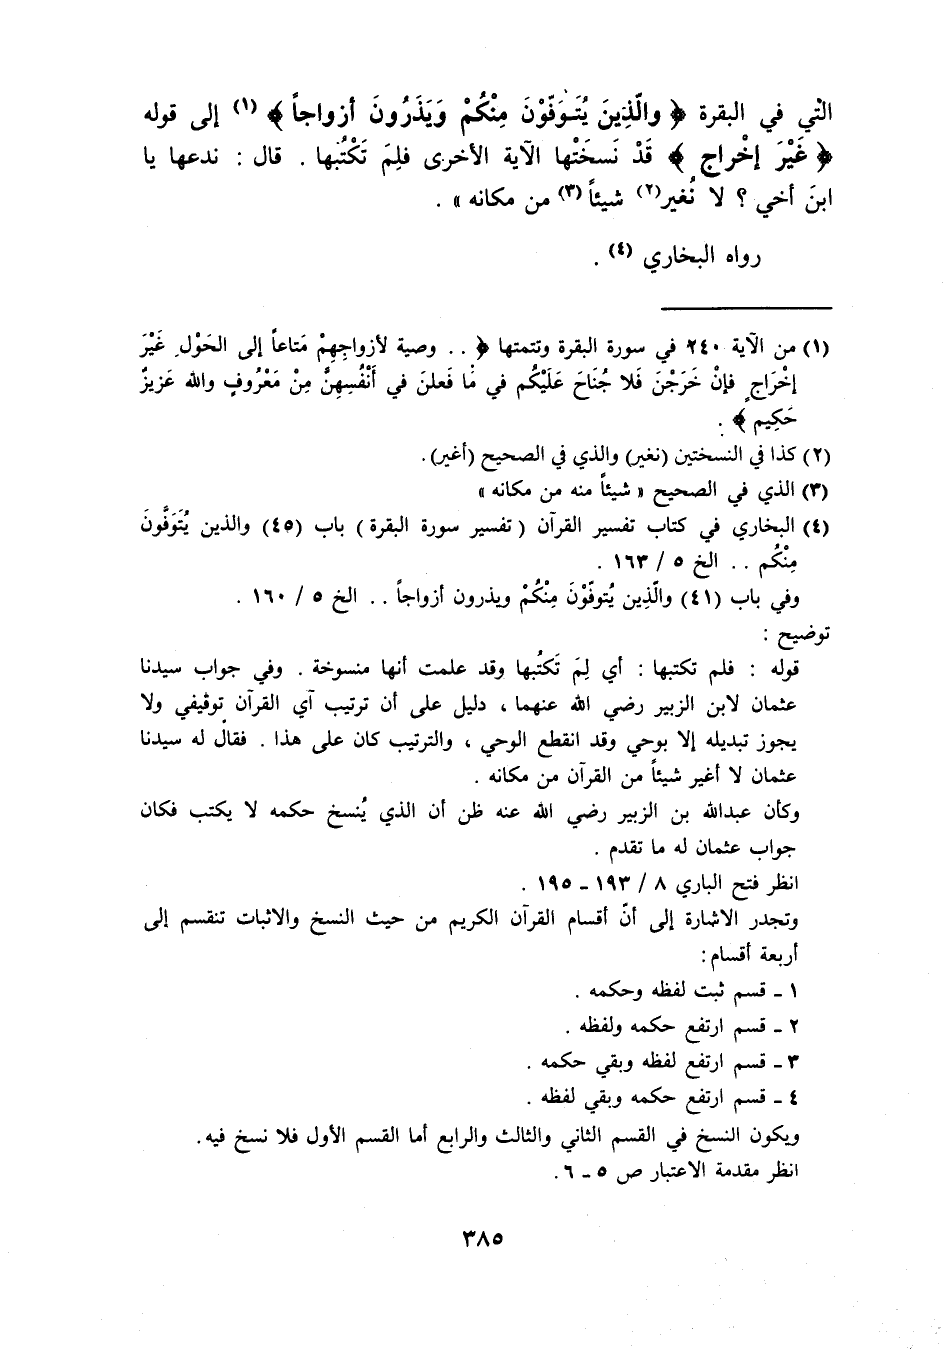 التي في البقرة ﴿ والّذِينَ يُتَوَفّوْنَ مِنْكُمْ وَيَذَرُونَ أزواجاً ﴾ (١) إلى قوله
﴿ غَيْرَ إخْراج ﴾ قَدْ نَسخَتْها الآية الأخرى فلِمَ تَكْتُبَها . قال : ندعها يا
ابنَ أخي ؟ لا نُغير(٢) شيئاً (٣) من مكانه » .
رواه البخاري (٤) .
(١) من الآية ٢٤٠ في سورة البقرة وتتمتها ﴿ . . وصية لأزواجِهِمْ مَتاعاً إلى الحَوْلِ غَيْرَ
إخْرَاجٍ فإنْ خَرَجْنَ فَلا جُنَاحَ عَلَيْكُم في مَا فَعلنَ في أَنْفُسِهِنَّ مِنْ مَعْرُوفٍ والله عَزيزٌ
حَكِيم ﴾ .
(٢) كذا في النسختين (نغير) والذي في الصحيح (أغير).
(٣) الذي في الصحيح « شيئاً منه من مكانه »
(٤) البخاري في كتاب تفسير القرآن ( تفسير سورة البقرة ) باب (٤٥) والذين يُتَوَفَّونَ
مِنْكُم . . الخ ٥ / ١٦٣ .
وفي باب (٤١) والّذِين يُتوفّوْنَ مِنْكُمْ ويذرون أزواجاً . . الخ ٥ / ١٦٠ .
توضيح :
قوله : فلم تكتبها : أي لِمَ تَكتُبها وقد علمت أنها منسوخة . وفي جواب سيدنا
عثمان لابن الزبير رضي الله عنهما ، دليل على أن ترتيب آي القرآن توقيفي ولا
يجوز تبديله إلا بوحي وقد انقطع الوحي ، والترتيب كان على هذا . فقال له سيدنا
عثمان لا أغير شيئاً من القرآن من مكانه .
وكأن عبدالله بن الزبير رضي الله عنه ظن أن الذي يُنسخ حكمه لا يكتب فكان
جواب عثمان له ما تقدم .
انظر فتح الباري ٨ / ١٩٣ - ١٩٥ .
وتجدر الاشارة إلى أنّ أقسام القرآن الكريم من حيث النسخ والاثبات تنقسم إلى
أربعة أقسام:
١ - قسم ثبت لفظه وحكمه .
٢ - قسم ارتفع حكمه ولفظه .
٣ - قسم ارتفع لفظه وبقي حكمه .
٤ - قسم ارتفع حكمه وبقي لفظه .
ويكون النسخ في القسم الثاني والثالث والرابع أما القسم الأول فلا نسخ فيه.
انظر مقدمة الاعتبار ص ٥ - ٦.
٣٨٥